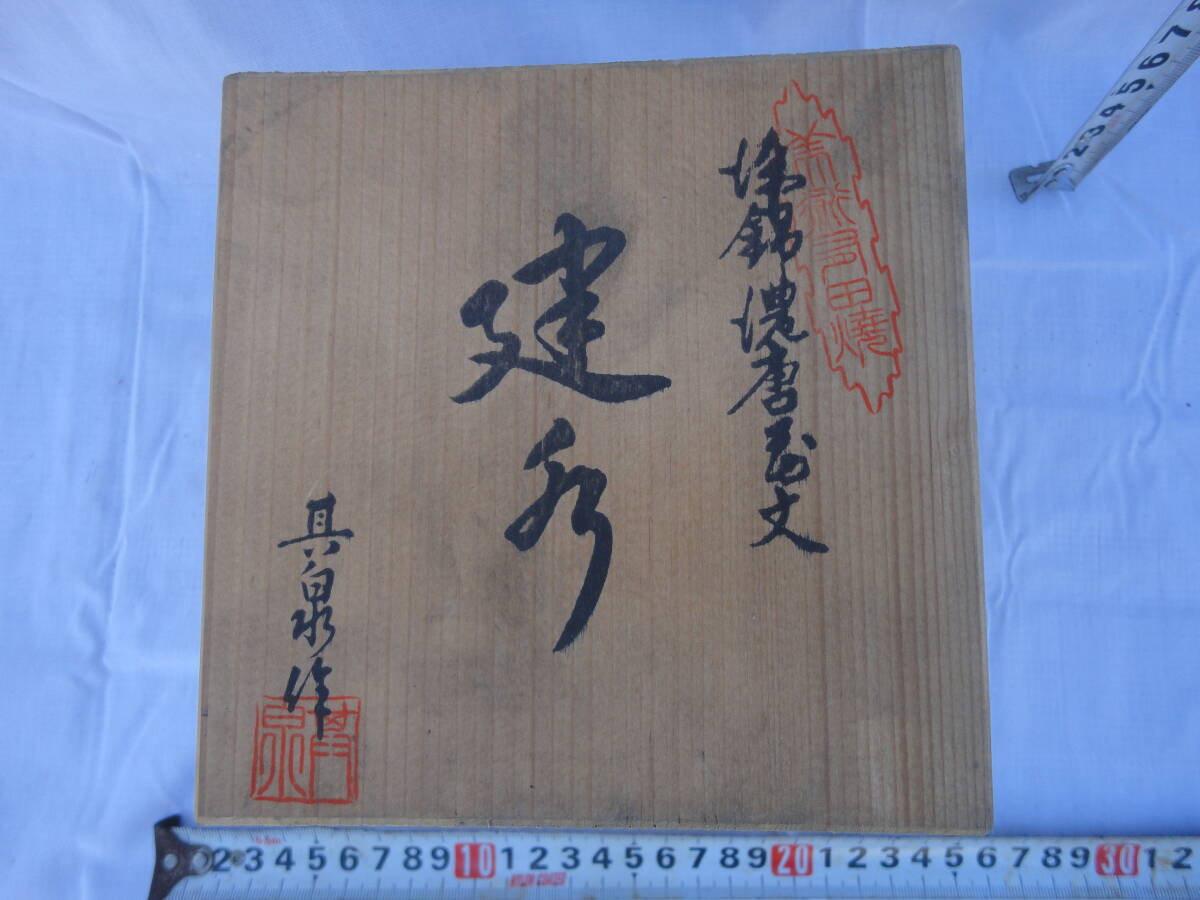 染錦濃唐草文
建水
其泉作
其泉
2 3 4 5 6 7 8 9 10 1 2 3 4 5 6 7 8 9 20 1 2 3 4 5 6 7 8 9 30 1 2
2 3 4 5 6 7